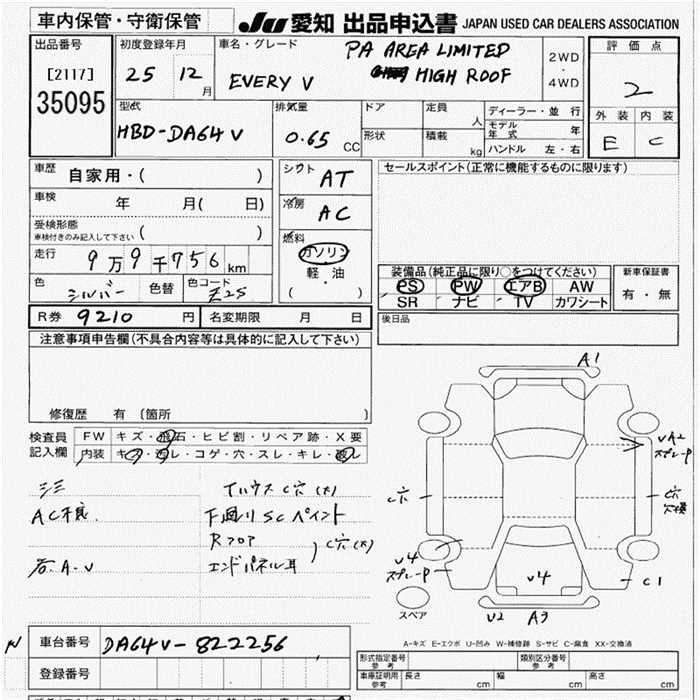 車内保管・守衛保管
JU 愛知 出品申込書 JAPAN USED CAR DEALERS ASSOCIATION
出品番号
[2117]
35095
初度登録年月
25 12月
車名・グレード
PA AREA LIMITED
EVERY V HIGH ROOF
2WD
・
4WD
評価点
2
外装 内装
E C
型式
HBD-DA64V
排気量
0.65 CC
ドア
定員 人
形状
積載 kg
ディーラー・並行
モデル年式 年
ハンドル 左・右
車歴 自家用・( )
車検 年 月( 日)
受検形態
車検付きのみ記入して下さい ( )
走行 9万9千756km
色 シルバー 色替 色コード Z2S
シフト AT
冷房 AC
燃料
ガソリン
軽・油
( )
セールスポイント(正常に機能するものに限ります)
装備品(純正品に限り○をつけてください)
PS PW エアB AW
SR ナビ TV カワシート
新車保証書
有・無
R券 9210 円 名変期限 月 日
後日品
注意事項申告欄(不具合内容等は具体的に記入して下さい)
修復歴 有 (箇所 )
検査員
記入欄
FW キズ・飛石・ヒビ割・リペア跡・X要
内装 キズ・汚レ・コゲ・穴・スレ・キレ・破レ
AC不良
右A-V
下廻りSCペイント
Rフロア
エンドパネル耳
C穴(大)
A1
VA2
スプレーP
C穴
C穴
V4
スプレーP
V4
C1
スペア
V2 A3
A-キズ E-エクボ U-凹み W-補修跡 S-サビ C-腐食 XX-交換済
車台番号 DA64V-822256
登録番号
形式指定番号
参考
類別区分番号
参考
車庫証明用
参考
長さ cm 幅 cm 高さ cm